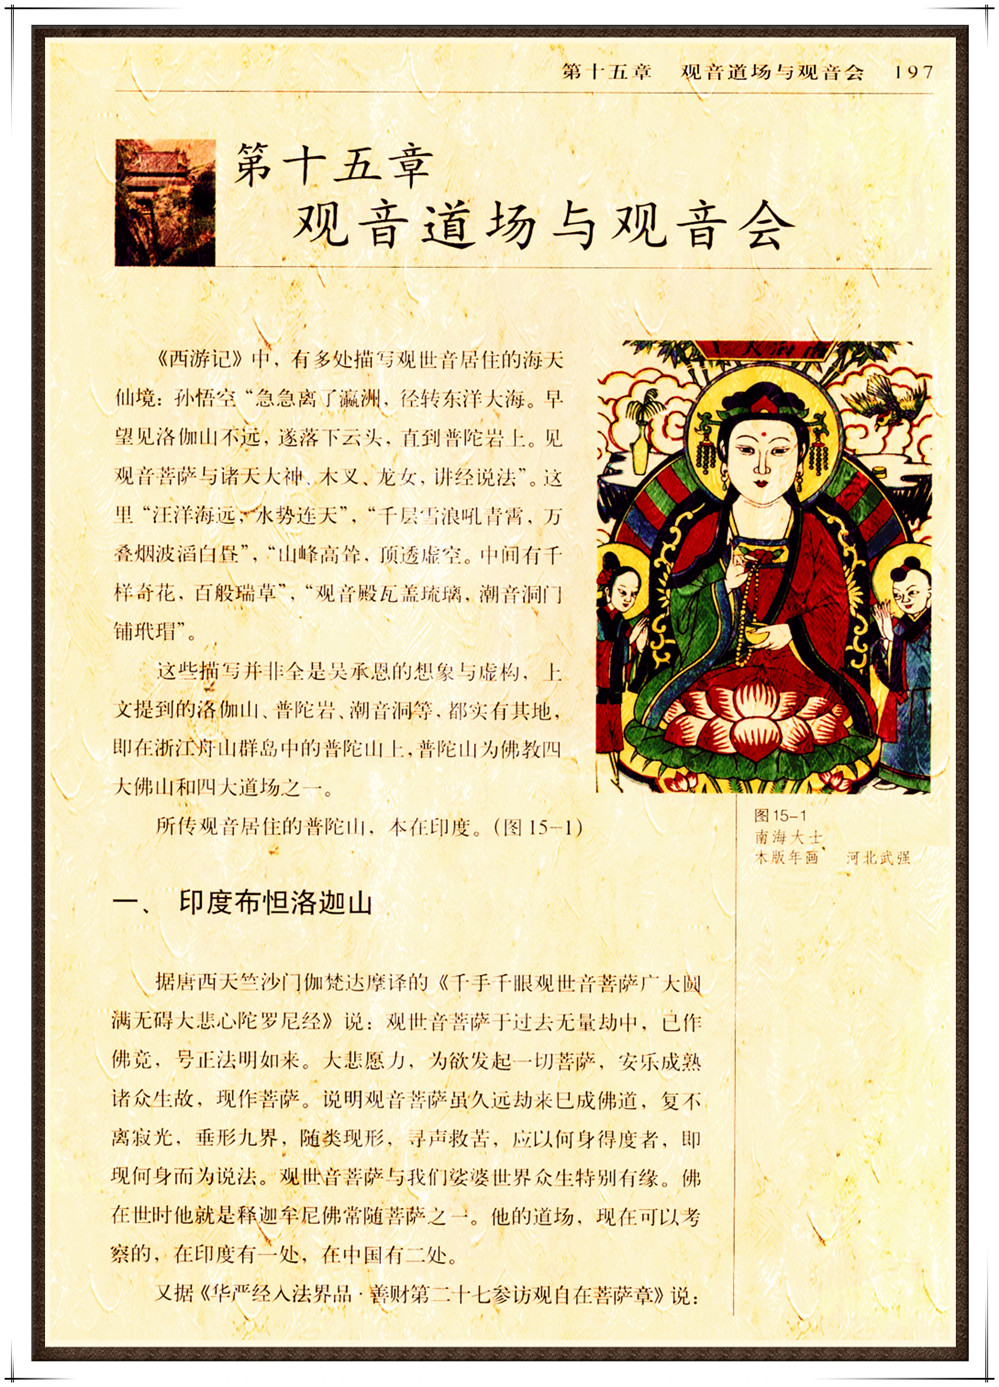 第十五章 观音道场与观音会 197
第十五章
观音道场与观音会
《西游记》中，有多处描写观世音居住的海天
仙境：孙悟空“急急离了瀛洲，径转东洋大海。早
望见洛伽山不远，遂落下云头，直到普陀岩上。见
观音菩萨与诸天大神、木叉、龙女，讲经说法”。这
里“汪洋海远，水势连天”，“千层雪浪吼青霄，万
叠烟波滔白昼”，“山峰高耸，顶透虚空。中间有千
样奇花，百般瑞草”，“观音殿瓦盖琉璃，潮音洞门
铺玳瑁”。
这些描写并非全是吴承恩的想象与虚构，上
文提到的洛伽山、普陀岩、潮音洞等，都实有其地，
即在浙江舟山群岛中的普陀山上，普陀山为佛教四
大佛山和四大道场之一。
所传观音居住的普陀山，本在印度。（图 15-1）
图 15-1
南海大士
木版年画 河北武强
一、 印度布怛洛迦山
据唐西天竺沙门伽梵达摩译的《千手千眼观世音菩萨广大圆
满无碍大悲心陀罗尼经》说：观世音菩萨于过去无量劫中，已作
佛竟，号正法明如来。大悲愿力，为欲发起一切菩萨，安乐成熟
诸众生故，现作菩萨。说明观音菩萨虽久远劫来已成佛道，复不
离寂光，垂形九界，随类现形，寻声救苦，应以何身得度者，即
现何身而为说法。观世音菩萨与我们娑婆世界众生特别有缘。佛
在世时他就是释迦牟尼佛常随菩萨之一。他的道场，现在可以考
察的，在印度有一处，在中国有二处。
又据《华严经入法界品·善财第二十七参访观自在菩萨章》说：